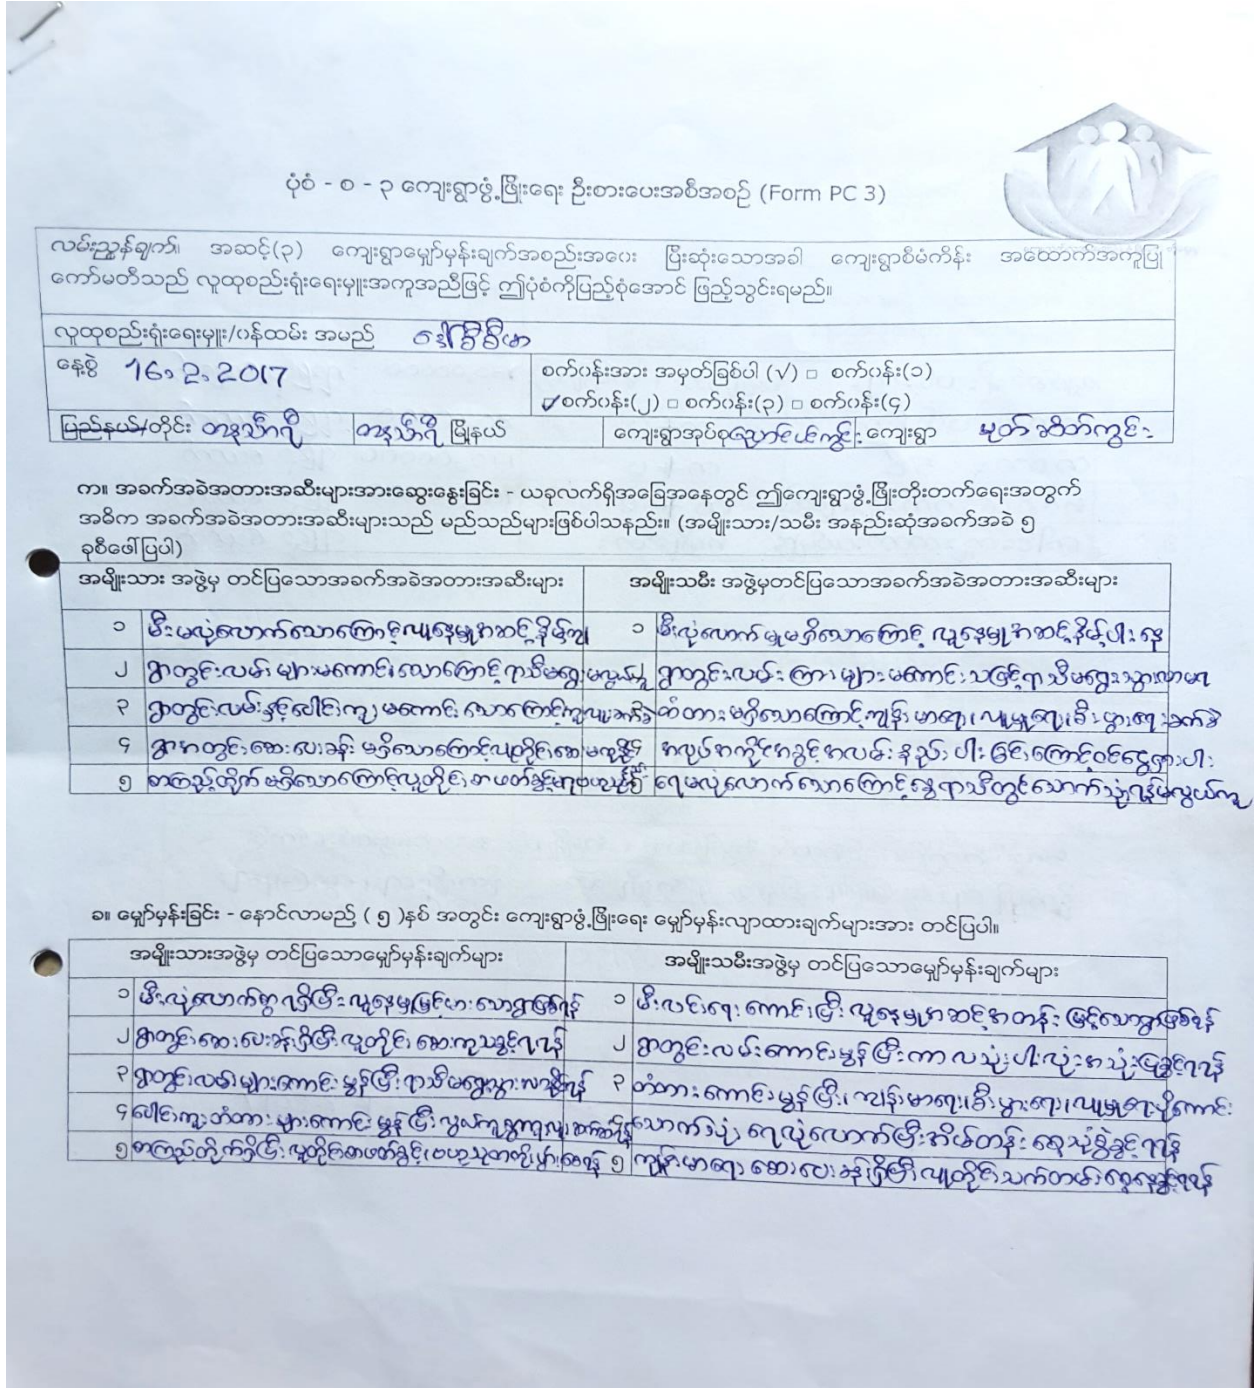 ပုံစံ - စ - ၃ ကျေးရွာဖွံ့ဖြိုးရေး ဦးစားပေးအစီအစဉ် (Form PC 3)
လမ်းညွှန်ချက်။ အဆင့်(၃) ကျေးရွာမျှော်မှန်းချက်အစည်းအဝေး ပြီးဆုံးသောအခါ ကျေးရွာစီမံကိန်း အထောက်အကူပြု
ကော်မတီသည် လူထုစည်းရုံးရေးမှူးအကူအညီဖြင့် ဤပုံစံကိုပြည့်စုံအောင် ဖြည့်သွင်းရမည်။
လူထုစည်းရုံးရေးမှူး/ဝန်ထမ်း အမည် ဒေါ်
နေ့စွဲ 16.2.2017 စက်ဝန်းအား အမှတ်ခြစ်ပါ (√) □ စက်ဝန်း(၁)
✓ စက်ဝန်း(၂) □ စက်ဝန်း(၃) □ စက်ဝန်း(၄)
ပြည်နယ်/တိုင်း တနင်္သာရီ တနင်္သာရီ မြို့နယ် ကျေးရွာအုပ်စု ကျေးရွာ မုတ်ဆိတ်ကွင်း
က။ အခက်အခဲအတားအဆီးများအားဆွေးနွေးခြင်း - ယခုလက်ရှိအခြေအနေတွင် ဤကျေးရွာဖွံ့ဖြိုးတိုးတက်ရေးအတွက်
အဓိက အခက်အခဲအတားအဆီးများသည် မည်သည်များဖြစ်ပါသနည်း။ (အမျိုးသား/သမီး အနည်းဆုံးအခက်အခဲ ၅
ခုစီဖေါ်ပြပါ)
အမျိုးသား အဖွဲ့မှ တင်ပြသောအခက်အခဲအတားအဆီးများ အမျိုးသမီး အဖွဲ့မှတင်ပြသောအခက်အခဲအတားအဆီးများ
၁ မီးမလုံလောက်သောကြောင့်လူနေမှုအဆင့်နိမ့်ကျ ၁ မီးလုံလောက်မှုမရှိသောကြောင့် လူနေမှုအဆင့်နိမ့်ပါးနေ
၂ ရွာတွင်းလမ်းများမကောင်းသောကြောင့်ရာသီမရွေး ၂ ရွာတွင်းလမ်းကြားများမကောင်းသဖြင့်ရာသီမရွေးသွားလာမရ
၃ ရွာတွင်းလမ်းနှင့်ပေါင်းကူးမကောင်းသောကြောင့် တံတားမရှိသောကြောင့်ကျန်းမာရေး၊လူမှုရေး၊စီးပွားရေးခက်ခဲ
၄ ရွာအတွင်းဆေးပေးခန်းမရှိသောကြောင့်လူတိုင်းဆေးမကုနိုင် ၄ အလုပ်အကိုင်အခွင့်အလမ်းနည်းပါးခြင်းကြောင့်ဝင်ငွေရှားပါး
၅ စာကြည့်တိုက်မရှိသောကြောင့်လူတိုင်းစာဖတ်ခွင့်မရ ၅ ရေမလုံလောက်သောကြောင့်နွေရာသီတွင်သောက်သုံးရန်မလွယ်ကူ
ခ။ မျှော်မှန်းခြင်း - နောင်လာမည် ( ၅ )နှစ် အတွင်း ကျေးရွာဖွံ့ဖြိုးရေး မျှော်မှန်းလျာထားချက်များအား တင်ပြပါ။
အမျိုးသားအဖွဲ့မှ တင်ပြသောမျှော်မှန်းချက်များ အမျိုးသမီးအဖွဲ့မှ တင်ပြသောမျှော်မှန်းချက်များ
၁ မီးလုံလောက်စွာရရှိပြီးလူနေမှုမြင့်မားသောရွာဖြစ်ရန် ၁ မီးလင်းရေးကောင်းပြီး လူနေမှုအဆင့်အတန်းမြင့်သောရွာဖြစ်ရန်
၂ ရွာတွင်းဆေးပေးခန်းရှိပြီးလူတိုင်းဆေးကုသခွင့်ရရန် ၂ ရွာတွင်းလမ်းကောင်းမွန်ပြီးကာလသုံးပါးလုံးအသုံးပြုခွင့်ရရန်
၃ ရွာတွင်းလမ်းများကောင်းမွန်ပြီးရာသီမရွေးသွားလာနိုင်ရန် ၃ တံတားကောင်းမွန်ပြီး၊ကျန်းမာရေး၊စီးပွားရေး၊လူမှုရေးပိုကောင်း
၄ ပေါင်းကူးတံတားများကောင်းမွန်ပြီး သောက်သုံးရေလုံလောက်ပြီးအိမ်တန်းရေသုံးစွဲခွင့်ရရန်
၅ စာကြည့်တိုက်ရှိပြီးလူတိုင်းစာဖတ်ခွင့်၊ဗဟုသုတတိုးပွားစေရန် ၅ ကျန်းမာရေးဆေးပေးခန်းရှိပြီးလူတိုင်းသက်တမ်းစေ့နေခွင့်ရရန်